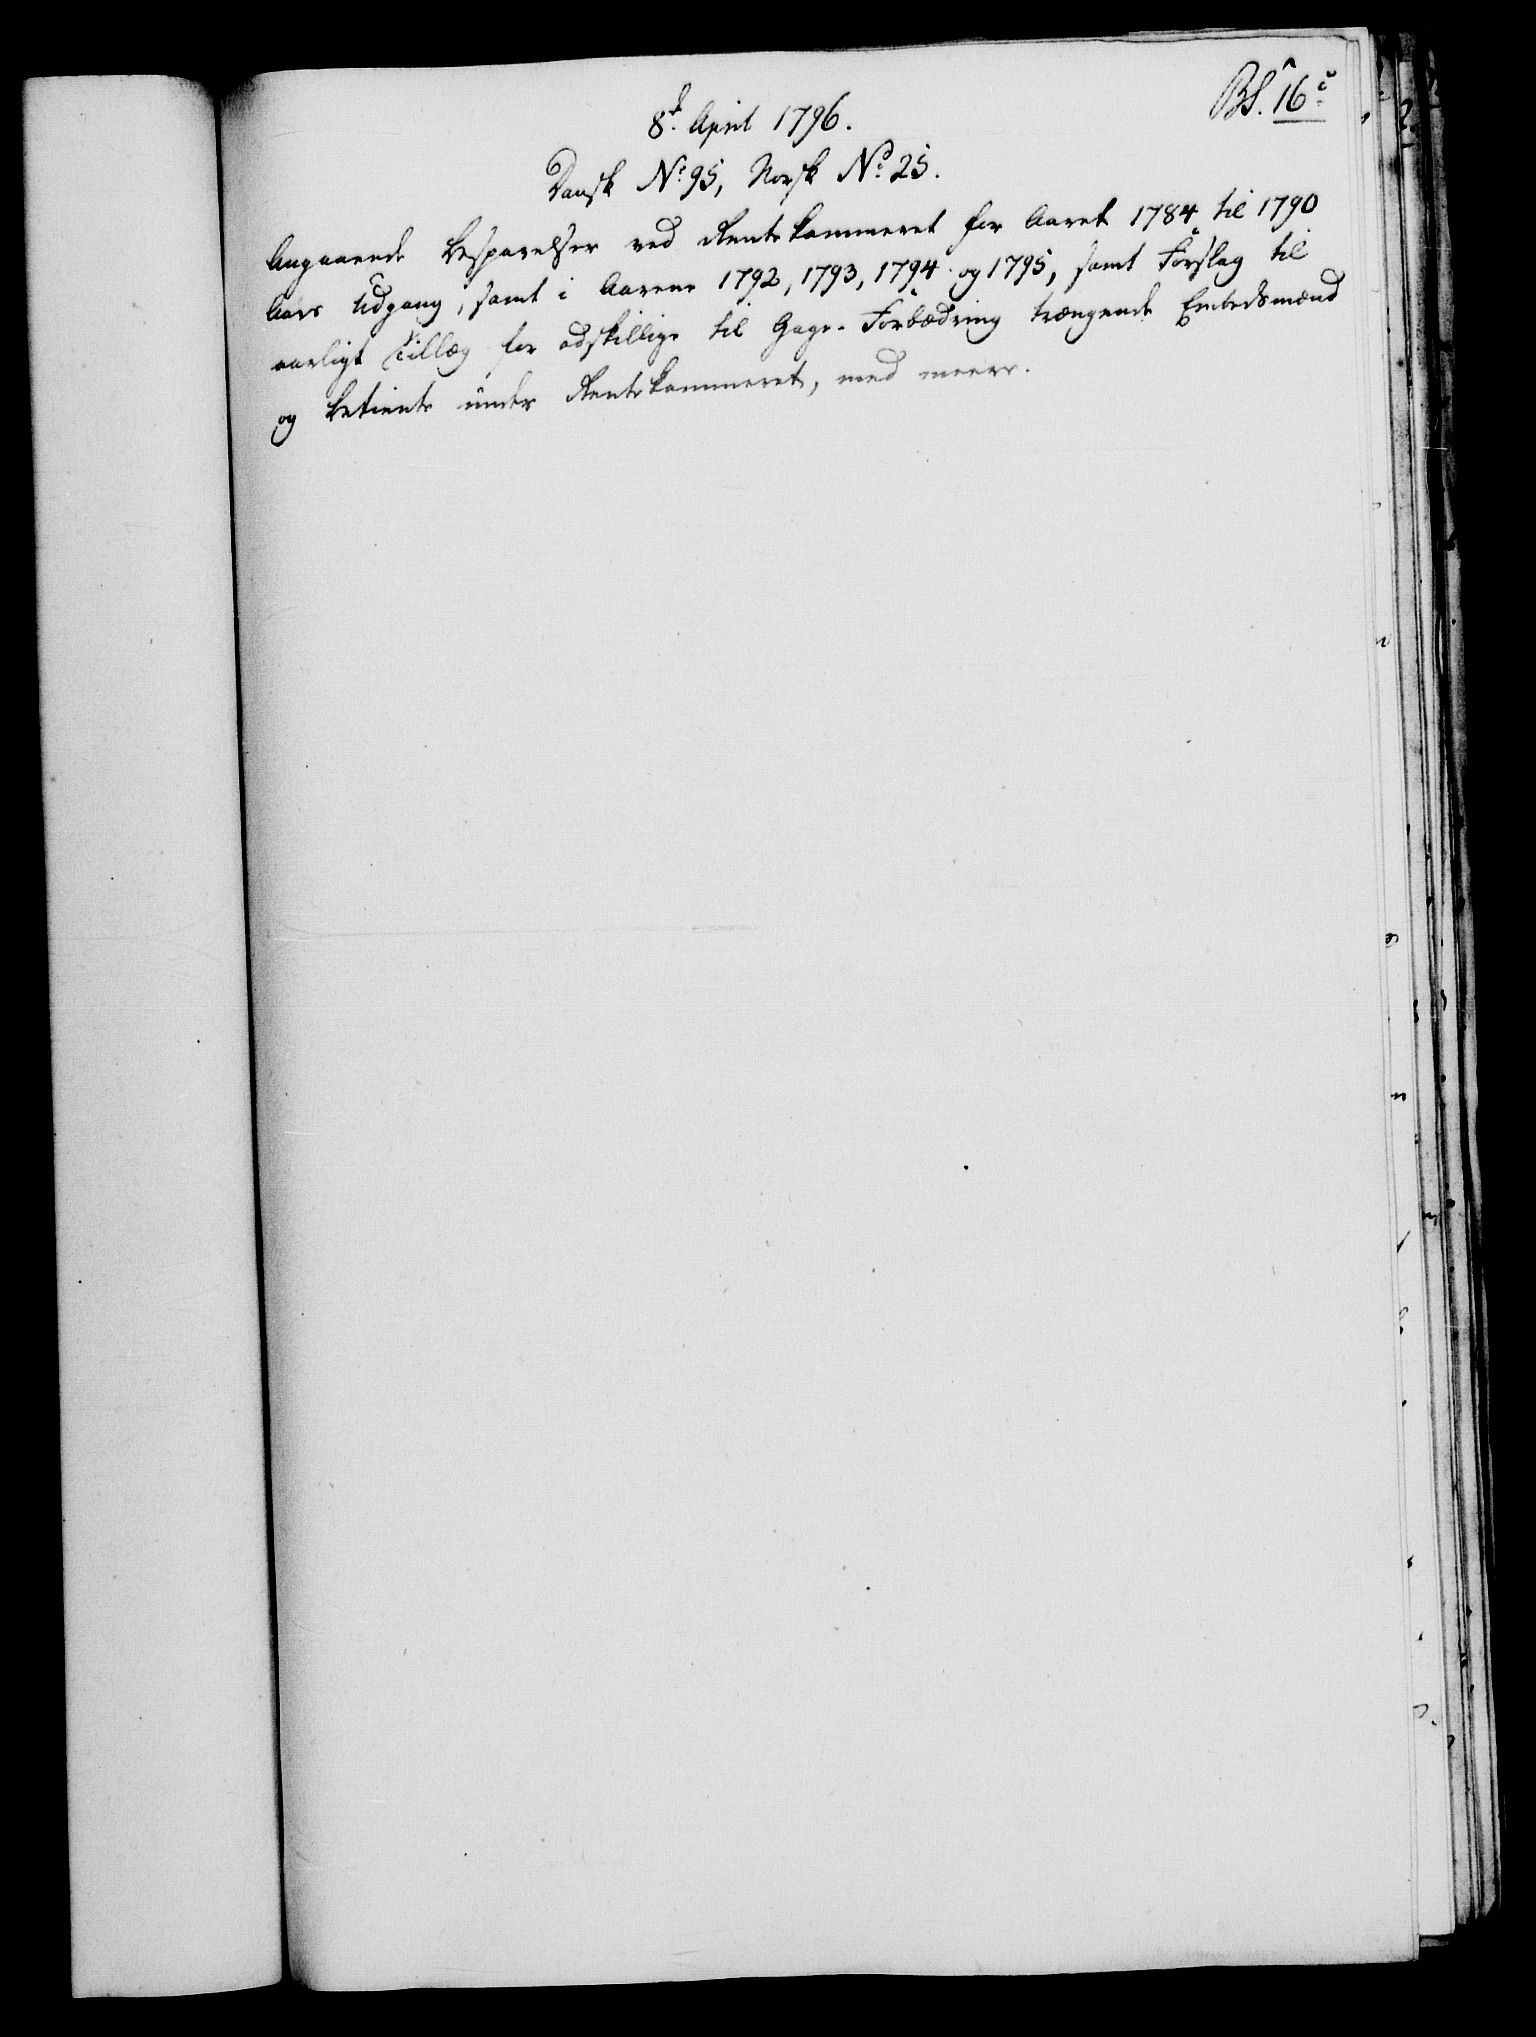 BS. 16c
8d. April 1796.
Dansk No. 95, Norsk No. 25.
Angaaende Besparelser ved Rentekammeret for Aaret 1784 til 1790
Aars Udgang, samt i Aarene 1792, 1793, 1794 og 1795, samt Forslag til
aarligt Tillæg for adskillige til Gage-Forbædring trængende Embedsmænd
og Betiente under Rentekammeret, med meere.